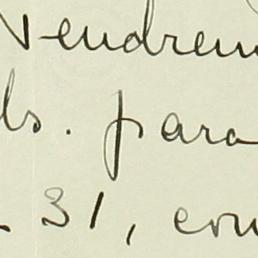 Vendrem
ls. para
31, con